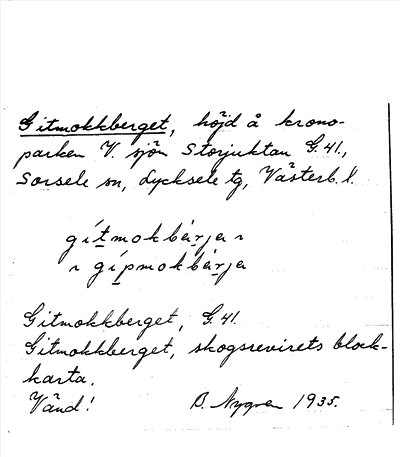 Gitmokkberget, höjd å krono-
parken V. sjön Storjuktan G.41.,
Sorsele sn, Lycksele tg, Västerb. l.
gítmokbärja
gípmokbärja
Gitmokkberget, G.41.
Gitmokkberget, skogsrevirets block-
karta.
Vänd! B. Nygren 1935.